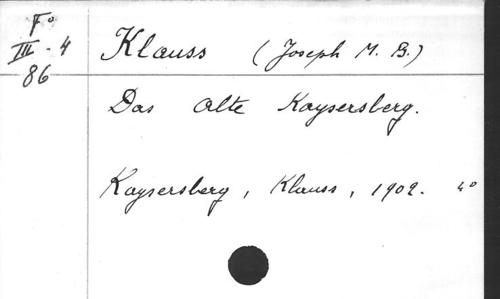 F°
III - 4
86
Klauss (Joseph M. B.)
Das alte Kaysersberg.
Kaysersberg, Klauss, 1902. 4°